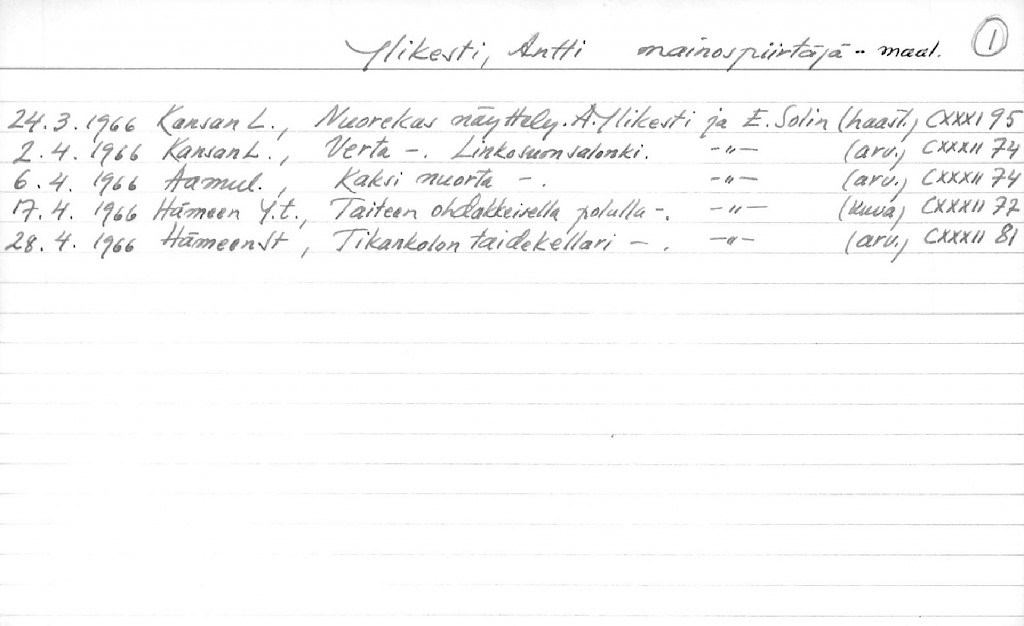 Ylikesti, Antti mainospiirtäjä - maal. 1
24.3.1966 Kansan L., Nuorekas näyttely. A. Ylikesti ja E. Solin (haast.) CXXXI 95
2.4.1966 Kansan L., Verta -. Linkosuon salonki. -"- (arv.) CXXXII 74
6.4.1966 Aamul., Kaksi nuorta -. -"- (arv.) CXXXII 74
17.4.1966 Hämeen Y.t., Taiteen ohdakkeisella polulla -. -"- (kuva) CXXXII 72
28.4.1966 HämeenSt, Tikankolon taidekellari -. -"- (arv.) CXXXII 81